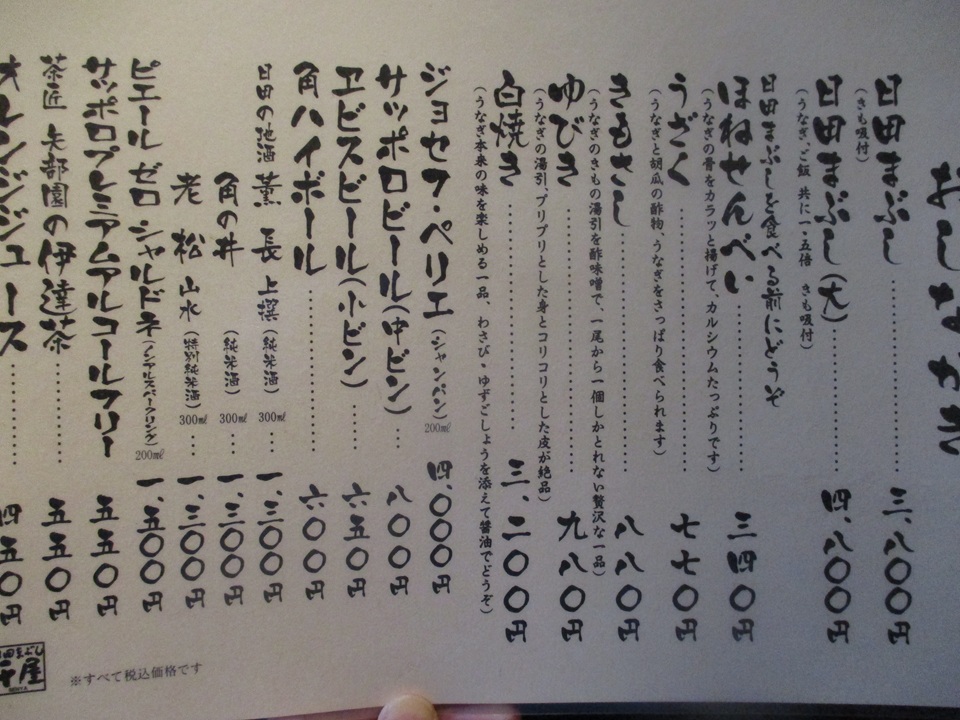 おしながき
日田まぶし………三、八〇〇円
(きも吸付)
日田まぶし(大)………四、八〇〇円
(うなぎ、ご飯 共に一・五倍 きも吸付)
日田まぶしを食べる前にどうぞ
ほねせんべい………三四〇円
(うなぎの骨をカラッと揚げて、カルシウムたっぷりです)
うざく………七七〇円
(うなぎと胡瓜の酢物、うなぎをさっぱり食べられます)
きもさし………八八〇円
(うなぎのきもの湯引を酢味噌で、一尾から一個しかとれない贅沢な一品)
ゆびき………九八〇円
(うなぎの湯引、プリプリとした身とコリコリとした皮が絶品)
白焼き………三、二〇〇円
(うなぎ本来の味を楽しめる一品、わさび・ゆずごしょうを添えて醤油でどうぞ)
ジョセフ・ペリエ(シャンパン)200㎖ 四、〇〇〇円
サッポロビール(中ビン)…八〇〇円
ヱビスビール(小ビン)………六五〇円
角ハイボール………六〇〇円
日田の地酒 薫長 上撰(純米酒)300㎖…一、三〇〇円
角の井(純米酒)300㎖…一、三〇〇円
老松 山水(特別純米酒)300㎖…一、三〇〇円
ピエール ゼロ シャルドネ(ノンアルスパークリング)200㎖ 一、五〇〇円
サッポロプレミアムアルコールフリー…五五〇円
茶匠 矢部園の伊達茶………五五〇円
オレンジジュース………四五〇円
※すべて税込価格です
日田まぶし
千屋
SENYA